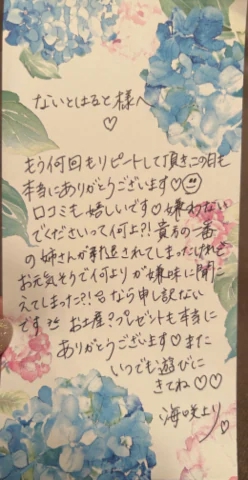 ないとはると様へ
♡
もう何回もリピートして頂き、この日も
本当にありがとうございます♡☺
口コミも嬉しいです♡嫌わない
でくださいって何よ?!貴方の一番
の姉さんが引退されてしまったけれど
お元気そうで何よりが嫌味に聞こ
えてしまった?!なら申し訳ない
です お土産?プレゼントも本当に
ありがとうございます♡また
いつでも遊びに
きてね♡♡
海咲より